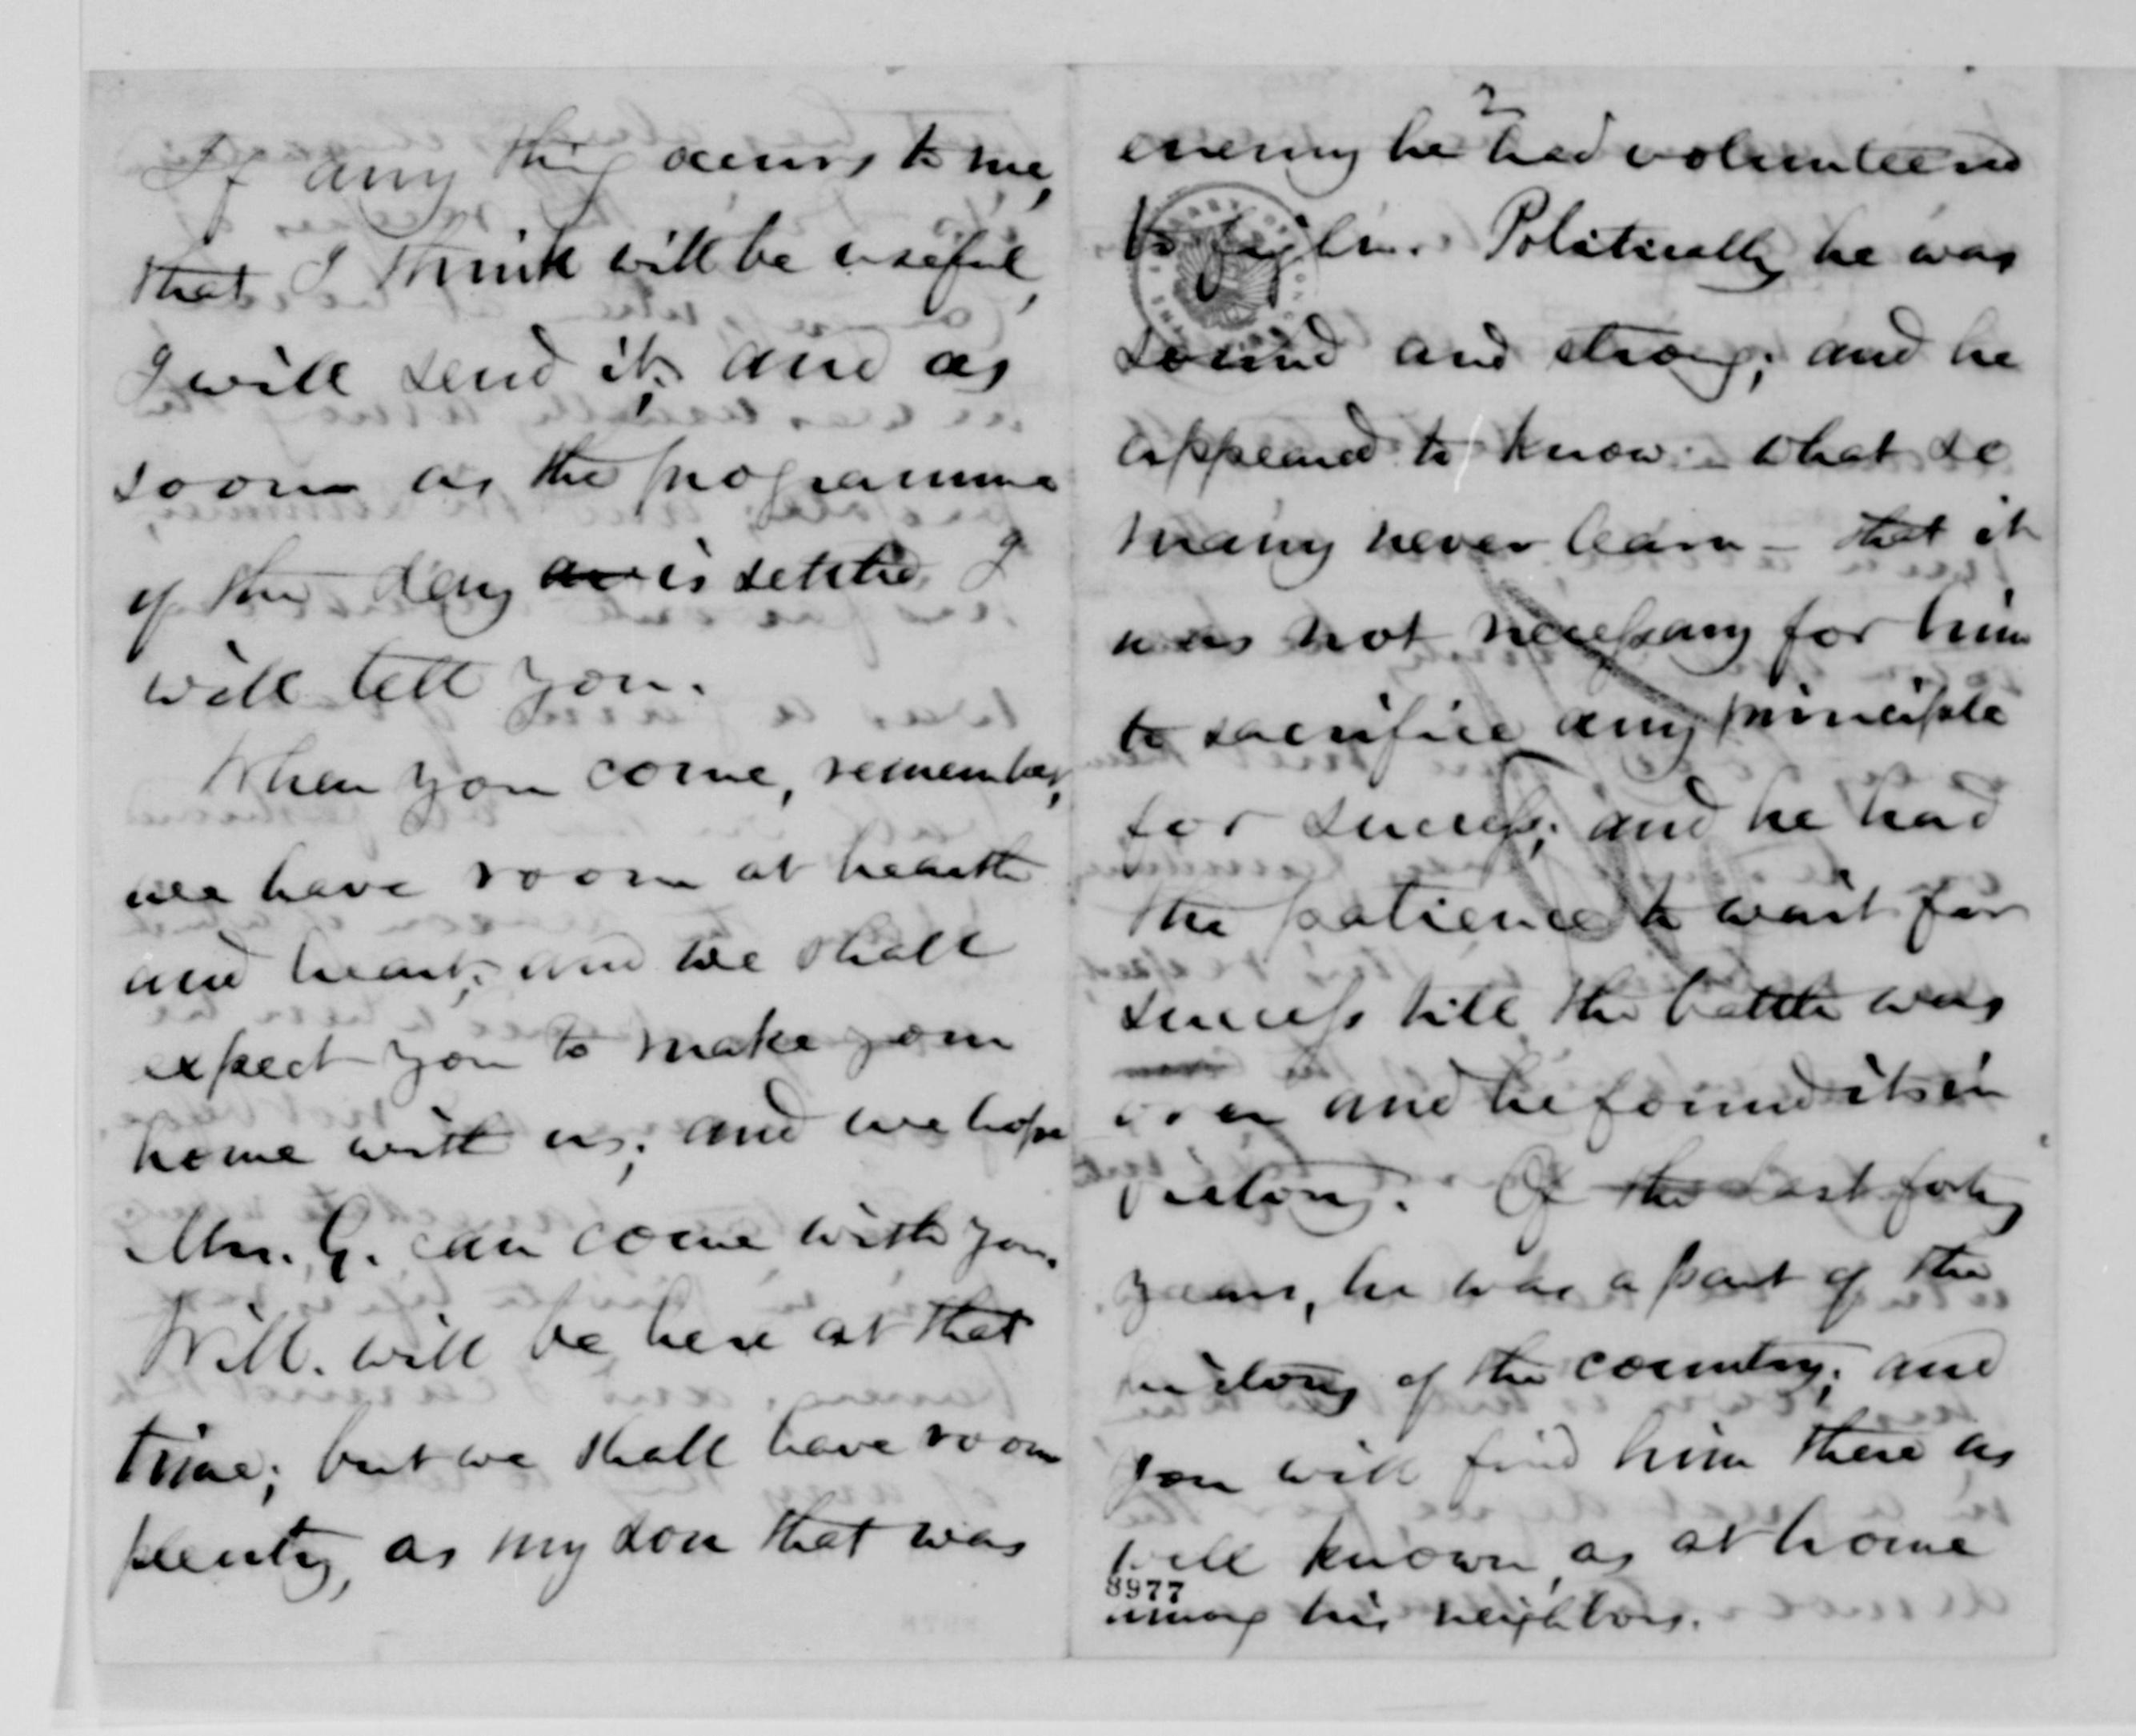 If any thing occurs to me,
that I think will be useful,
I will send it; and as
soon as the programme
of the day is settled, I
will tell you.
When you come, remember,
we have room at hearth
and heart; and we shall
expect you to make your
home with us; and we hope
Mrs. G. can come with you.
Will. will be here at that
time; but we shall have room
plenty, as my son that was
2
enemy he had volunteered
to fight. Politically he was
sound and strong; and he
appeared to know what so
many never learn - that it
was not necessary for him
to sacrifice any principle
for success; and he had
the patience to wait for
success till the battle was
over and he found it in
victory. Of the last forty
years, he was a part of the
history of the country; and
you will find him there as
well known as at home
8977
among his neighbors.